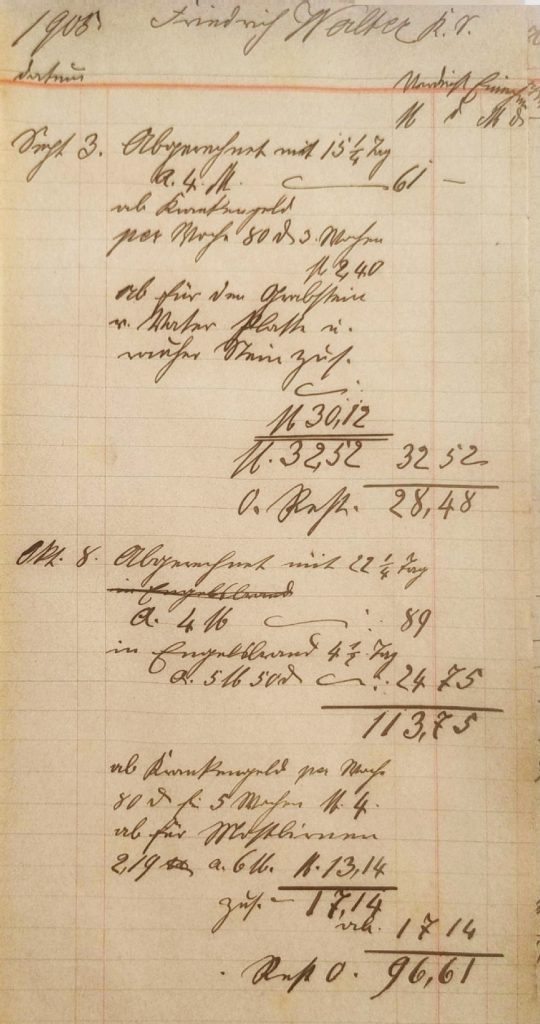 1905 Friedrich Walter K. S.
Datum Verdienst Einnahm
M d M d
Sept 3. Abgerechnet mit 15 1/4 Tag
a. 4 M. 61 —
ab Krankengeld
per Woche 80 d 3 Wochen
M 2,40
ab für den Grabstein
v. Vater Platte u.
rauher Stein zus.
M 30,12
M. 32,52 32 52
o. Rest. 28,48
Okt. 8. Abgerechnet mit 22 1/4 Tag
in Engelsbrand
a. 4 M 89
in Engelsbrand 4 1/2 Tag
a. 5 M 50 d 24 75
113,75
ab Krankengeld per Woche
80 d für 5 Wochen M. 4.
ab für Mostbirnen
2,19 a. 6 M. M. 13,14
zus. — 17,14
ab. 17 14
Rest o. 96,61